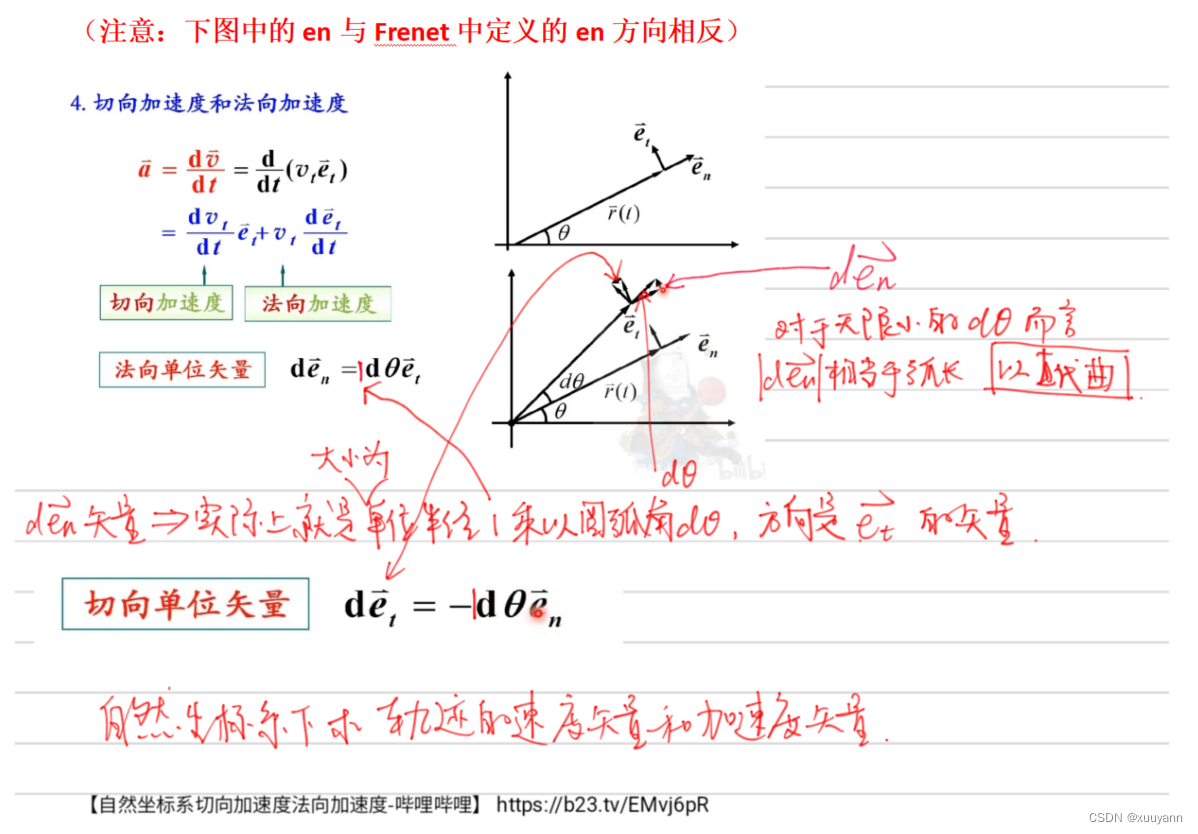 （注意：下图中的 en 与 Frenet 中定义的 en 方向相反）
4. 切向加速度和法向加速度
a⃗ = dv⃗/dt = d/dt (v_t e⃗_t)
= dv_t/dt e⃗_t + v_t de⃗_t/dt
切向加速度 法向加速度
法向单位矢量 de⃗_n = 1dθe⃗_t
e⃗_t
e⃗_n
r⃗(t)
θ
de⃗n
e⃗_t
e⃗_n
dθ
r⃗(t)
θ
dθ
对于无限小的dθ而言
|de⃗n|相当于弧长 以直代曲
大小为
de⃗n矢量 ⇒ 实际上就是单位半径1乘以圆弧角dθ，方向是e⃗t的矢量.
切向单位矢量 de⃗_t = −1dθe⃗_n
自然坐标系下求轨迹的速度矢量和加速度矢量.
【自然坐标系切向加速度法向加速度-哔哩哔哩】 https://b23.tv/EMvj6pR
CSDN @xuuyann